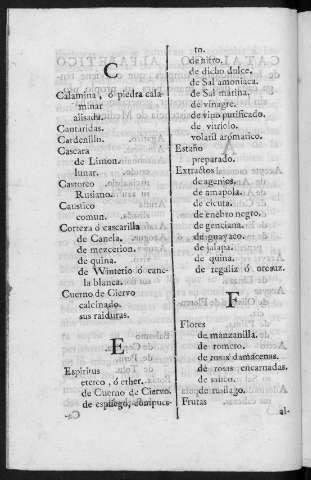 C
Calamina, ó piedra cala-
minar
alisada.
Cantaridas.
Cardenillo.
Cascara
de Limon.
lunar.
Castoreo
Rusiano.
Caustico
comun.
Corteza ó cascarilla
de Canela.
de mezcereon.
de quina.
de Winterio ó cane-
la blanca.
Cuerno de Ciervo
calcinado.
sus raiduras.
E
Espiritus
etereo, ó ether.
de Cuerno de Ciervo.
de espliego, compues-
Ca-
to.
de nitro.
de dicho dulce.
de Sal amoniaca.
de Sal marina.
de vinagre.
de vino purificado.
de vitriolo.
volatil aromatico.
Estaño
preparado.
Extractos
de agenjos.
de amapola.
de cicuta.
de enebro negro.
de genciana.
de guayaco.
de jalapa.
de quina.
de regaliz ó orozuz.
F
Flores
de manzanilla.
de romero.
de rosas damascenas.
de rosas encarnadas.
de sauco.
de tusilago.
Frutas
al-